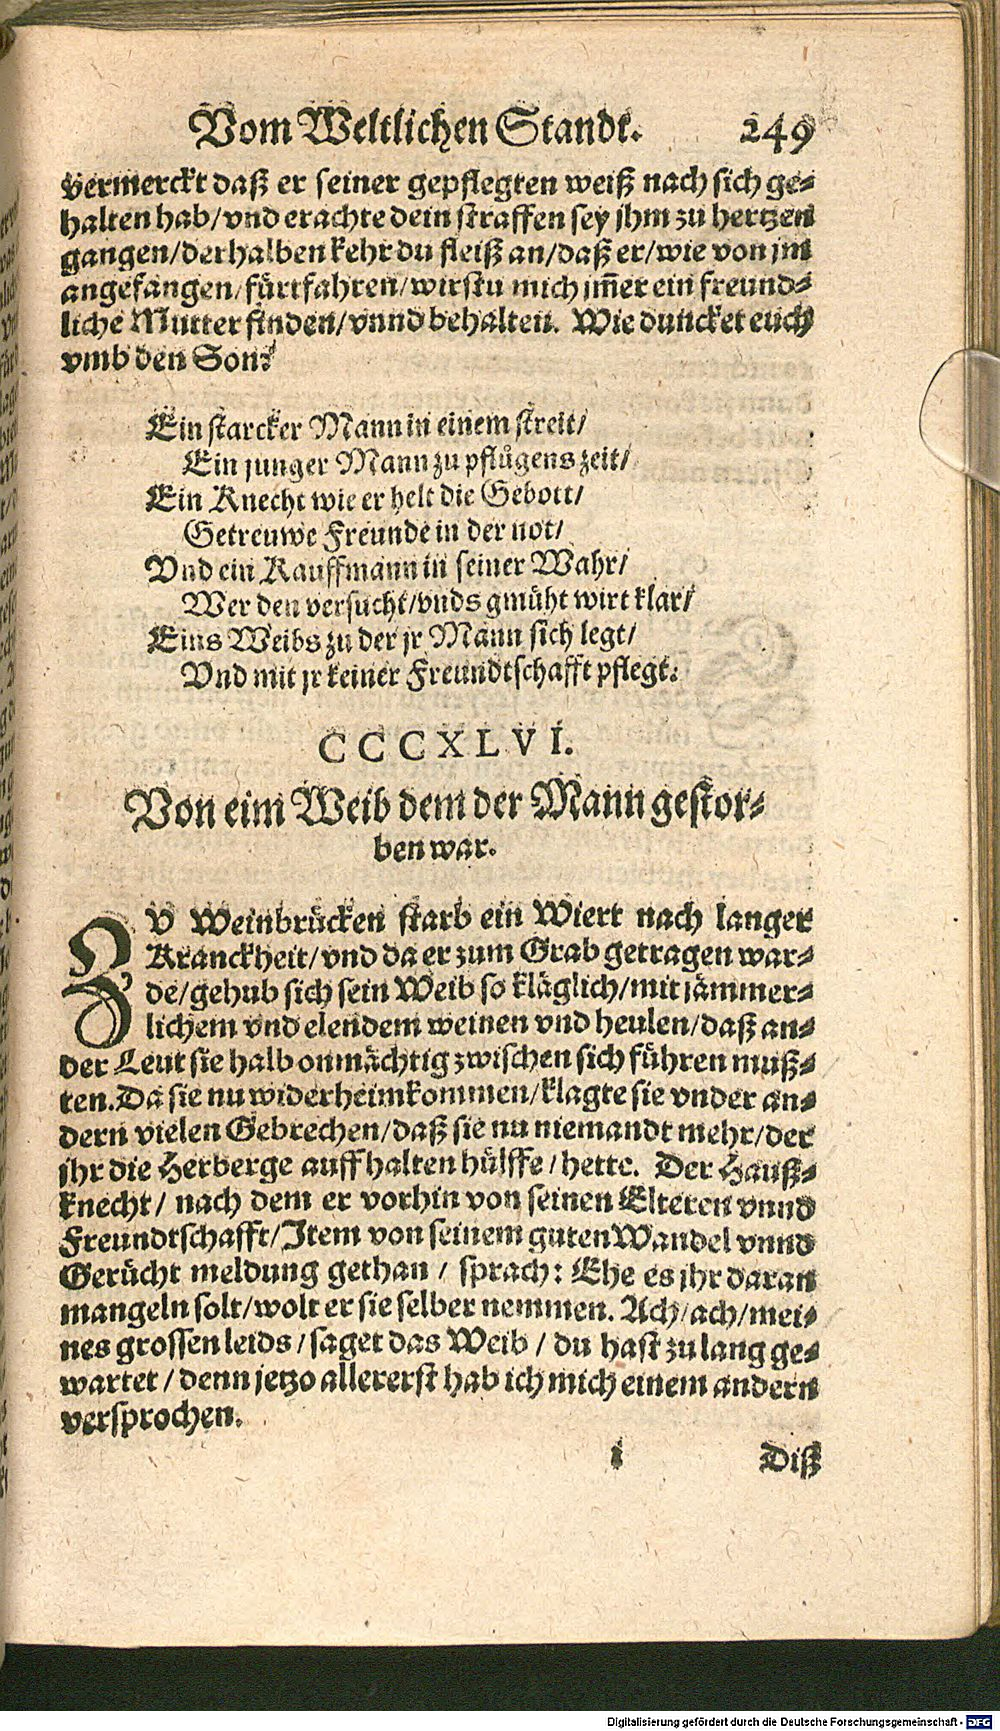 Vom Weltlichen Standt. 249
vermerckt daß er seiner gepflegten weiß nach sich ge-
halten hab/vnd erachte dein straffen sey jhm zu hertzen
gangen/derhalben kehr du fleiß an/daß er/wie von jm
angefangen/fürtfahren/wirstu mich im̃er ein freund-
liche Mutter finden/vnnd behalten. Wie duncket euch
vmb den Son?
Ein starcker Mann in einem streit/
Ein junger Mann zu pflůgens zeit/
Ein Knecht wie er helt die Gebott/
Getreuwe Freunde in der not/
Vnd ein Kauffmann in seiner Wahr/
Wer den versucht/vnds gmüht wirt klar/
Eins Weibs zu der jr Mann sich legt/
Vnd mit jr keiner Freundtschafft pflegt.
CCCXLVI.
Von eim Weib dem der Mann gestor-
ben war.
ZV Weinbrücken starb ein Wiert nach langer
Kranckheit/vnd da er zum Grab getragen war-
de/gehub sich sein Weib so kläglich/mit jämmer-
lichem vnd elendem weinen vnd heulen/daß an-
der Leut sie halb onmächtig zwischen sich führen muß-
ten. Da sie nu widerheimkommen/klagte sie vnder an-
dern vielen Gebrechen/daß sie nu niemandt mehr/der
jhr die Herberge auffhalten hülffe/hette. Der Hauß-
knecht/ nach dem er vorhin von seinen Elteren vnnd
Freundtschafft/Item von seinem guten Wandel vnnd
Gerücht meldung gethan / sprach: Ehe es jhr daran
mangeln solt/wolt er sie selber nemmen. Ach/ach/mei-
nes grossen leids/saget das Weib / du hast zu lang ge-
wartet / denn jetzo allererst hab ich mich einem andern
versprochen.
i Diß
Digitalisierung gefördert durch die Deutsche Forschungsgemeinschaft - DFG